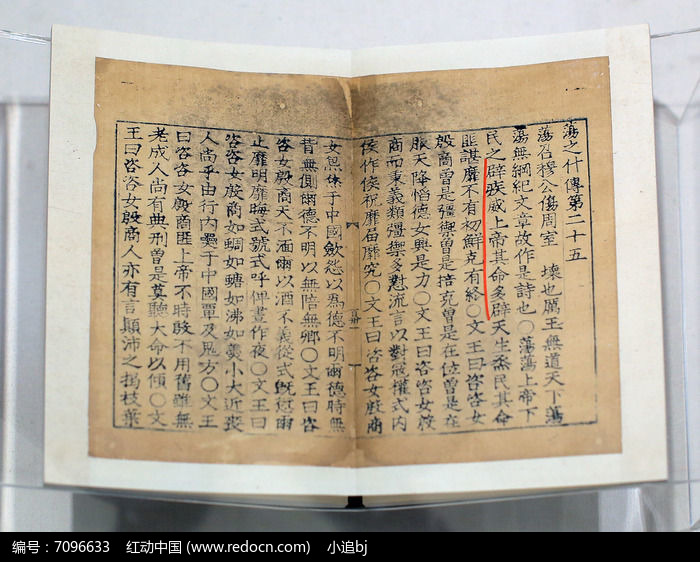 蕩之什傳第二十五
蕩召穆公傷周室 壞也厲王無道天下蕩
蕩無綱紀文章故作是詩也〇蕩蕩上帝下
民之辟疾威上帝其命多辟天生烝民其命
匪諶靡不有初鮮克有終〇文王曰咨咨女
殷商曾是彊禦曾是掊克曾是在位曾是在
服天降慆德女興是力〇文王曰咨咨女殷
商而秉義類彊禦多懟流言以對寇攘式内
侯作侯祝靡屆靡究〇文王曰咨咨女殷商
女炰烋于中國斂怨以為德不明爾德時無
背無側爾德不明以無陪無卿〇文王曰咨
咨女殷商天不湎爾以酒不義從式既愆爾
止靡明靡晦式號式呼俾晝作夜〇文王曰
咨咨女殷商如蜩如螗如沸如羹小大近喪
人尚乎由行内奰于中國覃及鬼方〇文王
曰咨咨女殷商匪上帝不時殷不用舊雖無
老成人尚有典刑曾是莫聽大命以傾〇文
王曰咨咨女殷商人亦有言顛沛之揭枝葉
编号：7096633 红动中国 (www.redocn.com) 小追bj